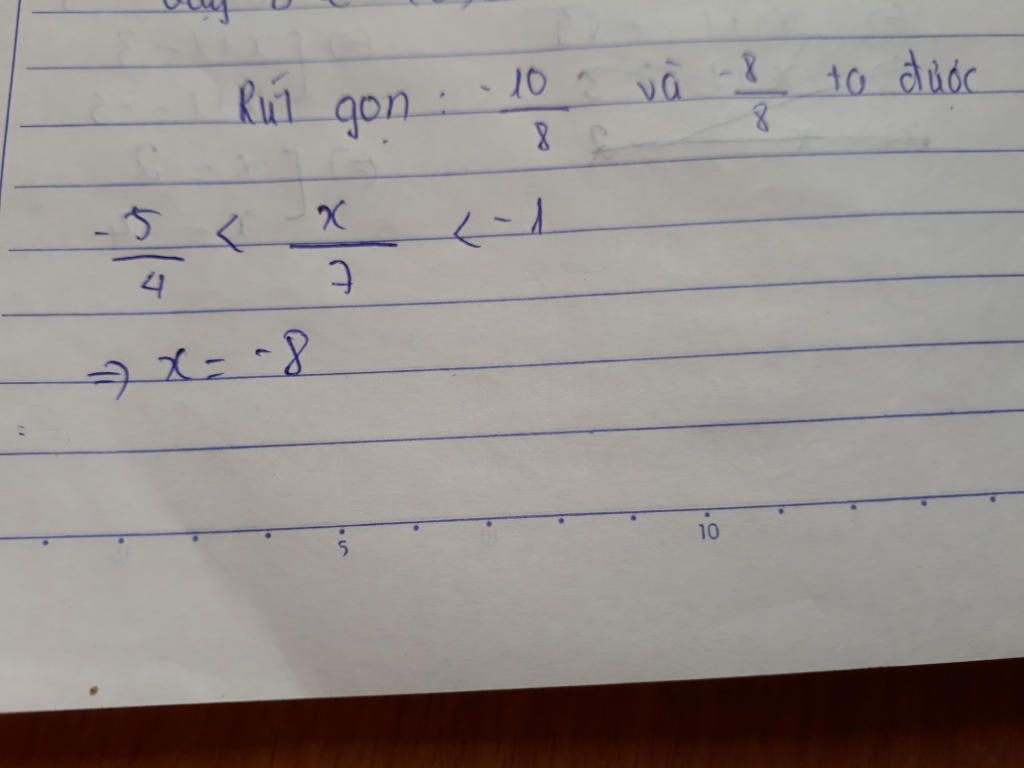 Rút gọn : -10/8 và -8/8 ta được
-5/4 < x/7 < -1
⇒ x = -8
5 10